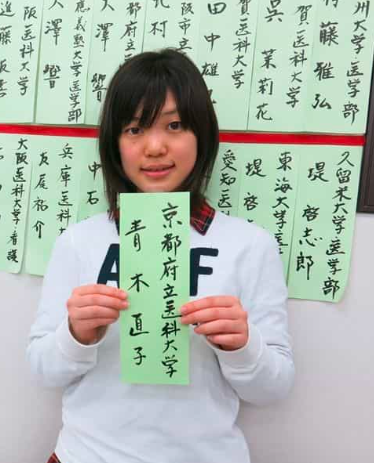 京都府立医科大学
青木直子
AF
久留米大学医学部
堤啓志郎
東海大学医
堤啓
愛知医
中石
兵庫医科大
友尾祐介
大阪医科大学・看護
州大学・医学部
藤雅弘
賀医科大学
呉茉莉花
賀医科大学
田中雄
阪市立
京都府立
大澤響
應義塾大学医学部
大澤響
阪医科大学
進藤